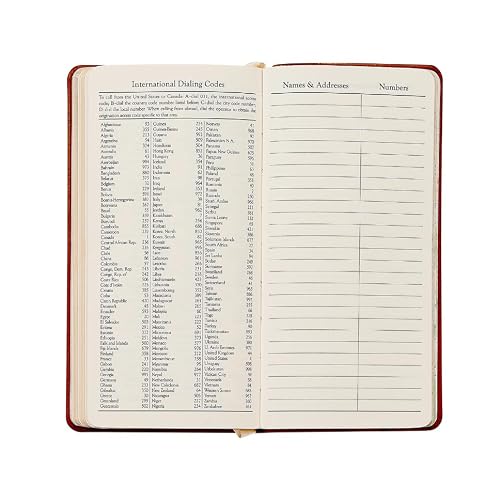 International Dialing Codes
To call from the United States or Canada: A-dial 011, the international access
code; B-dial the country code number listed below; C-dial the city code number;
D-dial the local number. When calling from abroad, dial the operator to obtain the
origination access code specific to that area.
Afghanistan 93
Albania 355
Algeria 213
Argentina 54
Armenia 374
Australia 61
Austria 43
Azerbaijan 994
Bahrain 973
Bangladesh 880
Belarus 375
Belgium 32
Benin 229
Bolivia 591
Bosnia-Herzegovina 387
Botswana 267
Brazil 55
Bulgaria 359
Burundi 257
Cambodia 855
Cameroon 237
Canada 1
Central African Rep. 236
Chad 235
Chile 56
China 86
Colombia 57
Congo, Dem. Rep. 243
Congo, Rep. of 242
Costa Rica 506
Cote d'Ivoire 225
Croatia 385
Cuba 53
Czech Republic 420
Denmark 45
Ecuador 593
Egypt 20
El Salvador 503
Eritrea 291
Ethiopia 251
Falkland Islands 500
Fiji Islands 679
Finland 358
France 33
Gabon 241
Gambia 220
Georgia 995
Germany 49
Ghana 233
Gibraltar 350
Greece 30
Greenland 299
Guatemala 502
Guinea 224
Guinea-Bissau 245
Guyana 592
Haiti 509
Honduras 504
Hong Kong 852
Hungary 36
Iceland 354
India 91
Indonesia 62
Iran 98
Iraq 964
Ireland 353
Israel 972
Italy 39
Japan 81
Jordan 962
Kazakhstan 7
Kenya 254
Kiribati 686
Korea, North 850
Korea, South 82
Kuwait 965
Kyrgyzstan 996
Laos 856
Lebanon 961
Lesotho 266
Liberia 231
Libya 218
Liechtenstein 423
Lithuania 370
Luxembourg 352
Macedonia 389
Madagascar 261
Malawi 265
Malaysia 60
Mali 223
Mauritania 222
Mexico 52
Micronesia 691
Moldova 373
Monaco 377
Mongolia 976
Morocco 212
Mozambique 258
Myanmar 95
Namibia 264
Nepal 977
Netherlands 31
New Caledonia 687
New Zealand 64
Nicaragua 505
Niger 227
Nigeria 234
Norway 47
Oman 968
Pakistan 92
Palestinian N.A. 970
Panama 507
Papua New Guinea 675
Paraguay 595
Peru 51
Philippines 63
Poland 48
Portugal 351
Romania 40
Russia 7
Rwanda 250
Saudi Arabia 966
Senegal 221
Serbia 381
Sierra Leone 232
Singapore 65
Slovakia 421
Slovenia 386
Solomon Islands 677
South Africa 27
Spain 34
Sri Lanka 94
Sudan 249
Suriname 597
Swaziland 268
Sweden 46
Switzerland 41
Syria 963
Taiwan 886
Tajikistan 992
Tanzania 255
Thailand 66
Togo 228
Tunisia 216
Turkey 90
Turkmenistan 993
Uganda 256
Ukraine 380
U. Arab Emirates 971
United Kingdom 44
United States 1
Uruguay 598
Uzbekistan 998
Vatican City 39
Venezuela 58
Vietnam 84
Western Samoa 685
Yemen 967
Zambia 260
Zimbabwe 263
Names & Addresses
Numbers